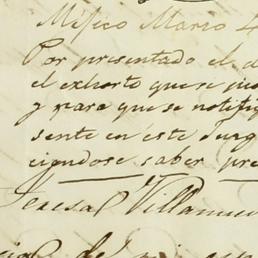 Mejico Marzo 4
Por presentado el
el exhorto que se
y para que se notifi
sente en este Juzg
ciendose saber pre
Villanue